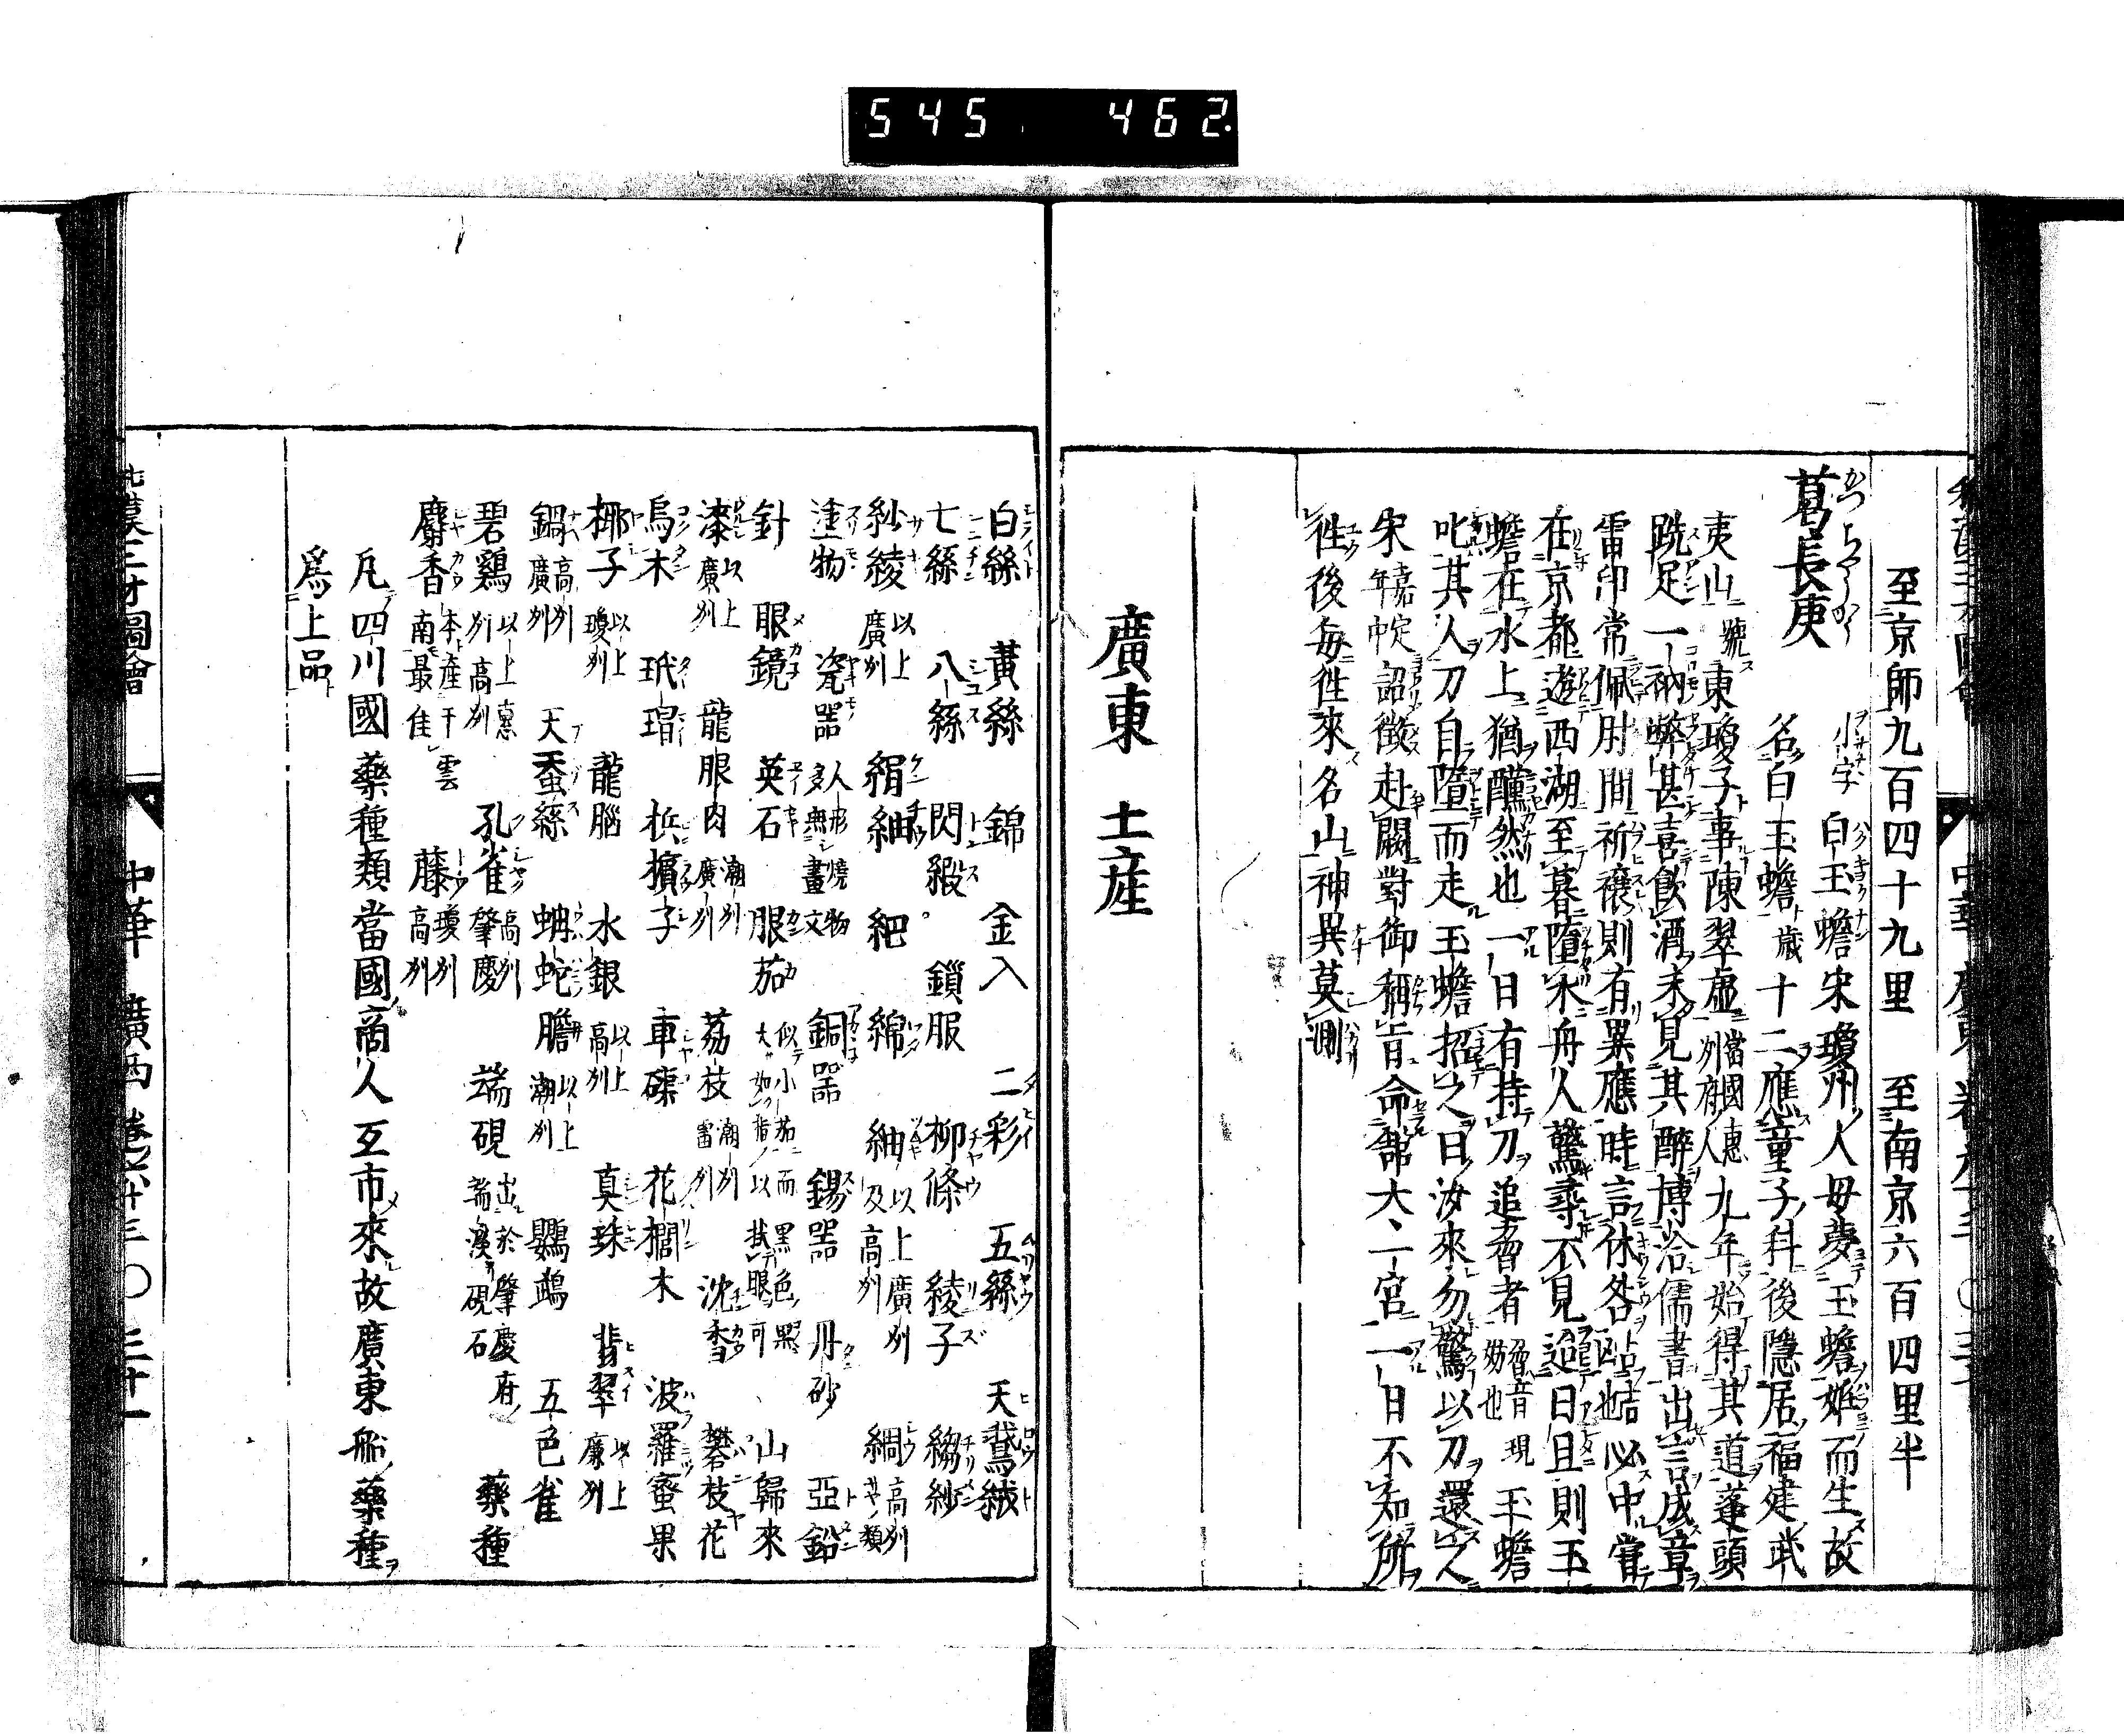 545 462
至京師九百四十九里 至南京六百四里半
葛長庚 小字白玉蟾宋瓊州人母夢玉蟾娠而生故
名白玉蟾歳十二應童子科後隱居福建武
夷山號東瓊子事陳翠虛當國惠州府人九年始得其道蓬頭
跣足一衲弊甚喜飲酒未見其醉博洽儒書出言成章
雷印常佩肘間祈禳則有異應時言休咎必中嘗
在京都遊西湖至暮墮水舟人驚尋不見迨日且則玉
蟾在水上猶醺然也一日有持刀追脅者現玉蟾
叱其人刀自墮而走玉蟾招之曰汝來勿驚以刀還人
宋嘉定年中詔徴赴闕對御稱旨命舘大一宮一日不知所
徃後每徃來名山神異莫測
廣東 土產
白絲 黃絲 錦 金入 二彩 五絲 天鵞絨
七絲 八絲 閃緞 鎖服 柳條 綾子 縐紗
紗綾 以上廣州 絹紬 紦 綿 紬 及以上廣州高州 綢 高州類
塗物 瓷器 人形燒物多無畫文 銅器 錫器 丹砂 亞鉛
針 眼鏡 英石 眼茄 似小茄而黑色大如指以拭眼可 山歸來
漆 以上廣州 龍眼肉 潮州廣州 荔枝 潮州雷州 沈香 攀枝花
烏木 玳瑁 梹擯子 車磲 花櫚木 波羅蜜果
椰子 以上瓊州 龍腦 水銀 以上高州 真珠 翡翠 以上廉州
鍋 高州廣州 天蚕絲 蚺蛇膽 以上潮州 鸚鵡 五色雀
碧鷄 以上惠州高州 孔雀 高州肇慶 端硯 出於肇慶府端溪硯石 藥種
麝香 本產于雲南最佳 藤 瓊州高州
凡四川國藥種類當國商人互市來故廣東船藥種
爲上品
和漢三才圖會 中華 廣西 卷六十三 〇 三十一